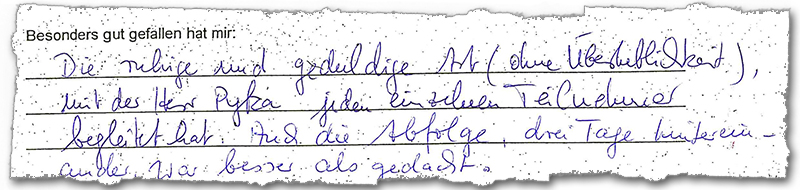 Besonders gut gefallen hat mir:
Die ruhige und geduldige Art (ohne Überheblichkeit),
mit der Herr Pyka jeden einzelnen Teilnehmer
begleitet hat. Auch die Abfolge, drei Tage hinterein-
ander war besser als gedacht.